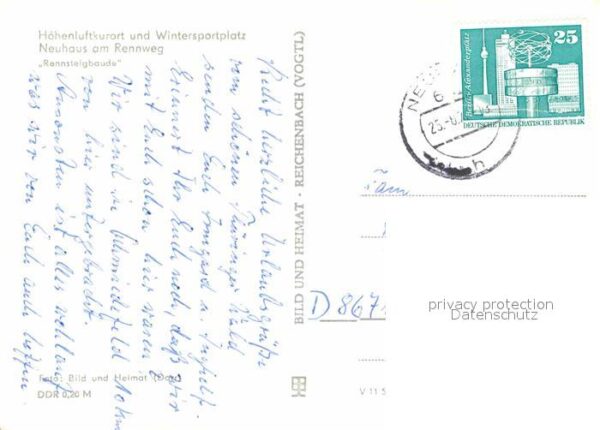 Höhenluftkurort und Wintersportplatz
Neuhaus am Rennweg
„Rennsteigbaude"
Recht herzliche Urlaubsgrüße
vom schönen Thüringer Wald
senden Euch Irmgard u.
Erinnert Ihr Euch noch, daß wir
mit Euch schon hier waren?
Wir sind in Schmiedefeld
von hier untergebracht.
Ansonsten ist alles wohlauf
was wir von Euch auch hoffen.
Foto: Bild und Heimat
DDR 0,20 M
BILD UND HEIMAT · REICHENBACH (VOGTL)
V 11 5
25
Berlin-Alexanderplatz
DEUTSCHE DEMOKRATISCHE REPUBLIK
Fam
D 867
privacy protection
Datenschutz